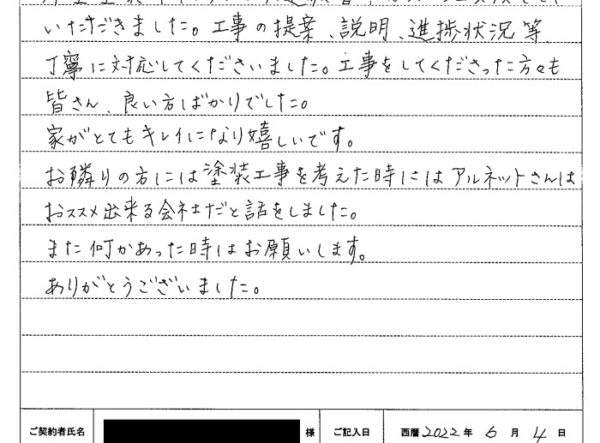 いただきました。工事の提案、説明、進捗状況等、
丁寧に対応してくださいました。工事をしてくださった方々も
皆さん、良い方ばかりでした。
家がとてもキレイになり嬉しいです。
お隣りの方には塗装工事を考えた時にはアルネットさんは
おススメ出来る会社だと話をしました。
また何かあった時はお願いします。
ありがとうございました。
ご契約者氏名 様 ご記入日 西暦 2022 年 6 月 4 日